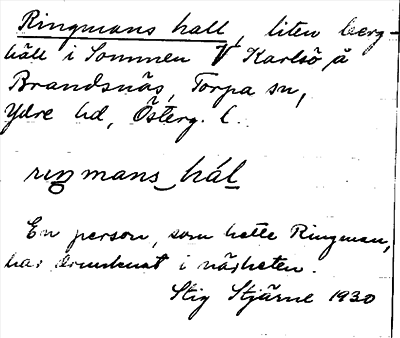 Ringmans hall, liten berg-
häll i Sommen V Karlsö å
Brandsnäs, Torpa sn,
Ydre hd, Österg. l.
riŋmans_hál
En person, som hette Ringman,
har drunknat i närheten.
Stig Stjärne 1930